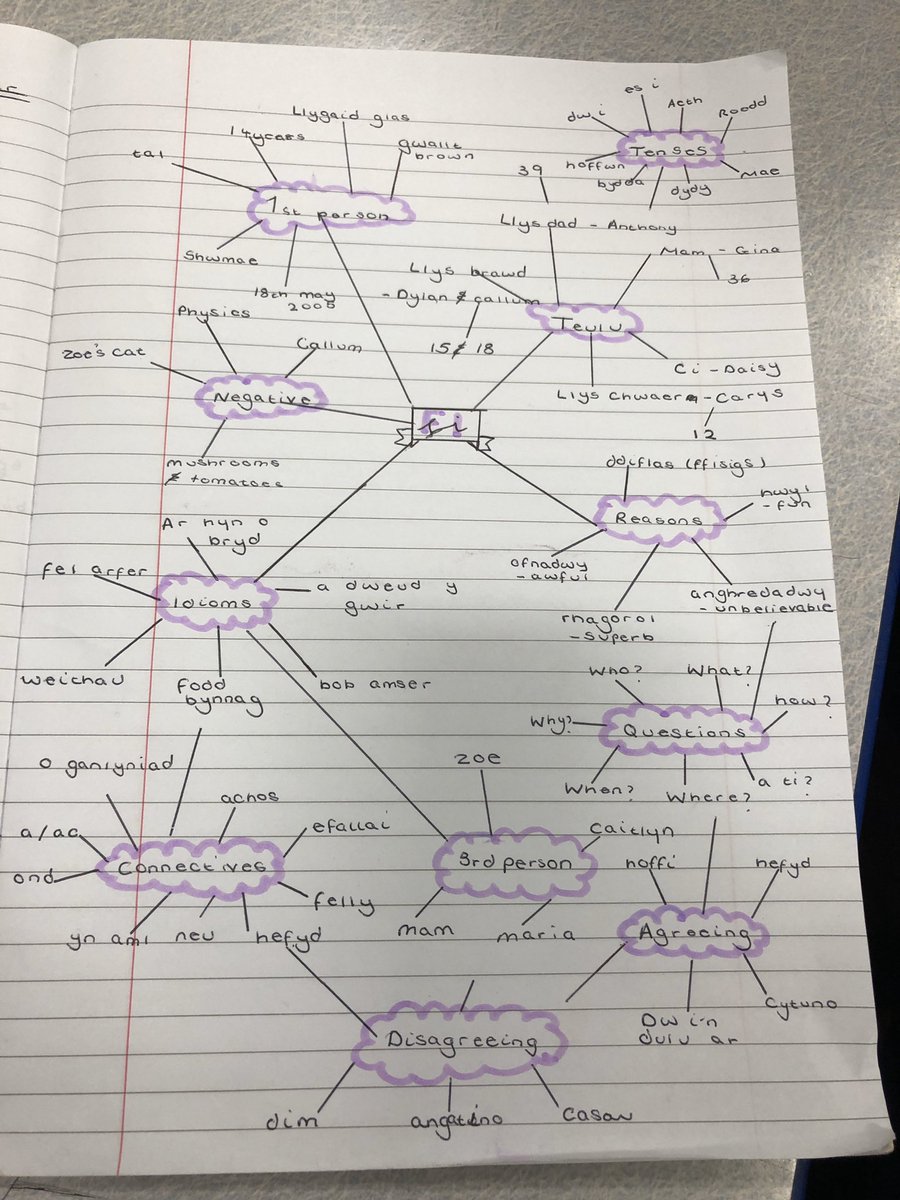 es i
dw i
Acth
Roedd
Tenses
hoffwn
bydda
dydy
Mae
Llygaid glas
14years
gwallt
brown
tal
1st person
Shwmae
18th may
2005
39
Llys dad - Anthony
Mam - Gina
36
Llys brawd
- Dylan & Callum
15 & 18
Teulu
Ci - Daisy
Llys Chwaer - Carys
12
Physics
Zoe's cat
Callum
Negative
mushrooms
& tomatoes
Fi
ddiflas (ffisigs)
hwyl
- fun
Reasons
ofnadwy
- awful
rhagorol
- superb
anghredadwy
- unbelievable
Ar hyn o
bryd
fel arfer
Idioms
a dweud y
gwir
weithau
Fodd
bynnag
bob amser
Who?
What?
how?
Why?
Questions
When?
Where?
a ti?
O ganlyniad
achos
a/ac
efallai
Connectives
ond
felly
yn aml
neu
hefyd
zoe
caitlyn
3rd person
mam
maria
hoffi
hefyd
Agreeing
Cytuno
Dw i'n
dulu ar
Disagreeing
dim
angatuno
casau